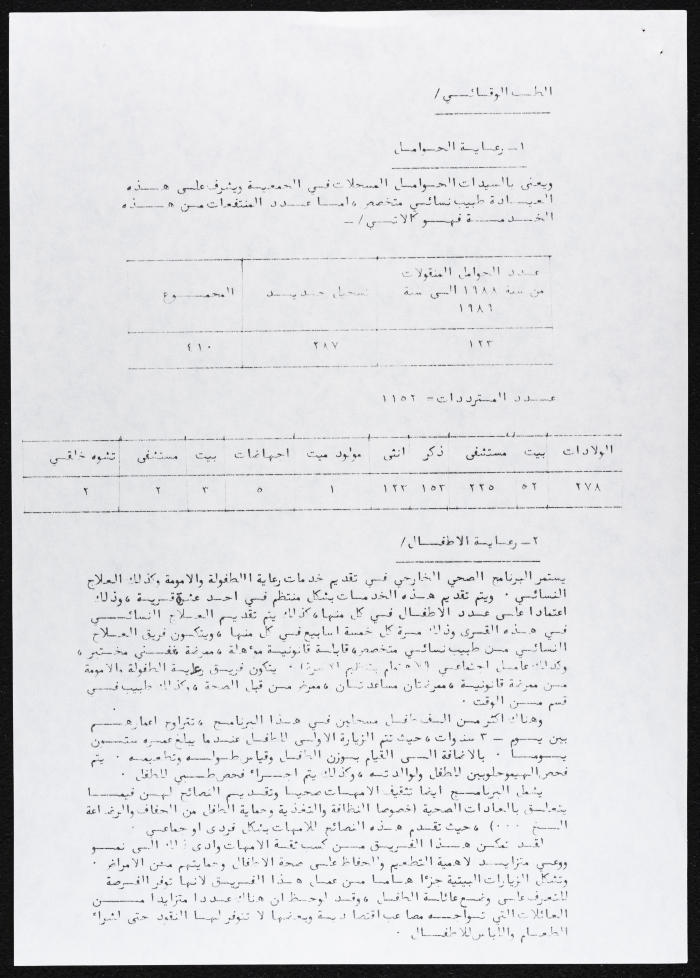 الطب الوقائي /
١ـ رعاية الحوامل
ويعنى بالسيدات الحوامل المسجلات في الجمعية ويشرف على هذه
العيادة طبيب نسائي متخصص ، اما عدد المنتفعات من هذه
الخدمة فهو كالاتي /ـ
عدد الحوامل المنقولات من سنة ١٩٨٨ الى سنة ١٩٨٩ تسجيل جديد المجموع
١٢٣ ٢٨٧ ٤١٠
عدد المترددات = ١١٥٢
الولادات بيت مستشفى ذكر انثى مولود ميت اجهاضات بيت مستشفى تشوه خلقي
٢٧٨ ٥٢ ٢٢٥ ١٥٣ ١٢٢ ١ ٥ ٣ ٢ ٢
٢ـ رعاية الاطفال /
يستمر البرنامج الصحي الخارجي في تقديم خدمات رعاية الطفولة والامومة وكذلك العلاج
النسائي . ويتم تقديم هذه الخدمات بشكل منتظم في احد عشر قرية ، وذلك
اعتمادا على عدد الاطفال في كل منها ، كذلك يتم تقديم العلاج النسائي
في هذه القرى وذلك مرة كل خمسة اسابيع في كل منها ، ويتكون فريق العلاج
النسائي من طبيب نسائي متخصص ، قابلة قانونية مؤهلة ، ممرضة ، فني مختبر ،
وكذلك عامل اجتماعي (للاهتمام بتنظيم الاسرة) . يتكون فريق رعاية الطفولة والامومة
من ممرضة قانونية ، ممرضتان مساعدتان ، ممرض من قبل الصحة ، وكذلك طبيب في
قسم من الوقت .
وهناك اكثر من الف طفل مسجلين في هذا البرنامج ، تتراوح اعمارهم
بين يوم ـ ٣ سنوات ، حيث تتم الزيارة الاولى للطفل عندما يبلغ عمره ستون
يوما . بالاضافة الى القيام بوزن الطفل وقياس طوله وتطعيمه . يتم
فحص الهيموجلوبين للطفل ولوالدته ، وكذلك يتم اجراء فحص طبي للطفل .
يشمل البرنامج ايضا تثقيف الامهات صحيا وتقديم النصائح لهن فيما
يتعلق بالعادات الصحية (خصوصا النظافة والتغذية وحماية الطفل من الجفاف والرضاعة
الخ ...) ، حيث تقدم هذه النصائح للامهات بشكل فردي او جماعي .
لقد تمكن هذا الفريق من كسب ثقة الامهات وادى ذلك الى نمو
ووعي متزايد لاهمية التطعيم والحفاظ على صحة الاطفال وحمايتهم من الامراض .
وتشكل الزيارات البيتية جزءا هاما من عمل هذا الفريق لانها توفر الفرصة
للتعرف على وضع عائلة الطفل ، وقد لوحظ ان هناك عددا متزايدا من
العائلات التي تواجه مصاعب اقتصادية وبعضها لا تتوفر لها النقود حتى لشراء
الطعام واللباس للاطفال .